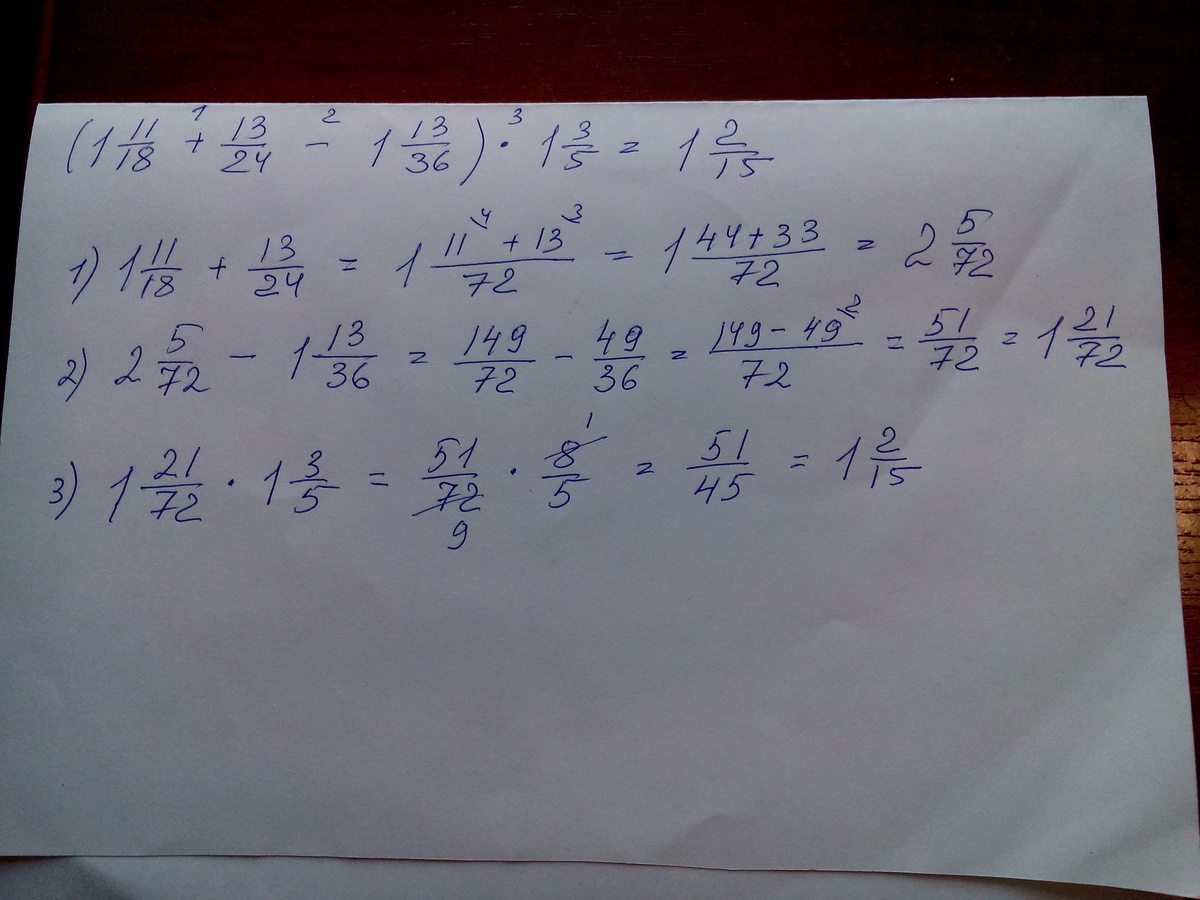 (1 11/18 +¹ 13/24 −² 1 13/36) ·³ 1 3/5 = 1 2/15
1) 1 11/18 + 13/24 = 1 (11\4 + 13\3)/72 = 1 (44+33)/72 = 2 5/72
2) 2 5/72 − 1 13/36 = 149/72 − 49/36 = (149 − 49\2)/72 = 51/72 = 1 21/72
3) 1 21/72 · 1 3/5 = 51/72 9 · 8/5 1 = 51/45 = 1 2/15